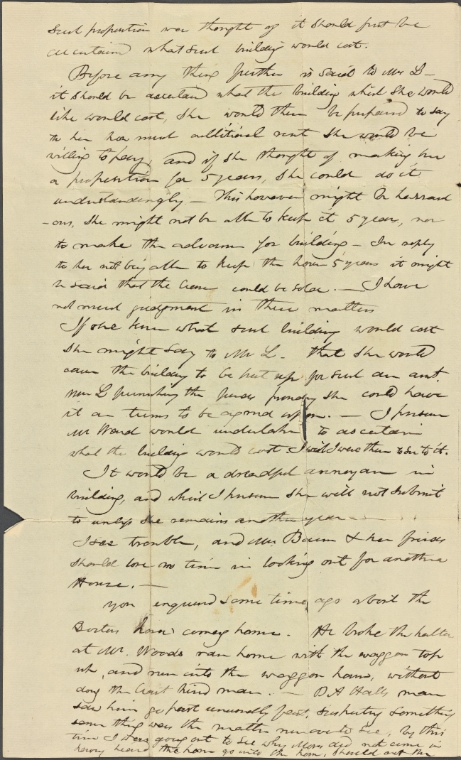 Such proposition was thought of it should first be
ascertained what such building would cost.
Before any thing further is said to Mr L—
it should be ascertaind what the building which she would
like would cost, she would then be prepared to say
to her how much additional rent she would be
willing to pay, and if she thought of making him
a proposition for 5 years, she could do it
understandingly — This however might be hazard
-ous, she might not be able to keep it 5 years, nor
to make the advance for building — In reply
to her not being able to keep the house 5 years it might
be said that the lease could be sold. — I have
not much judgment in these matters
If she knew what such building would cost
she might say to Mr L. that she would
cause the building to be put up for such an amt.
Mr L furnishing the funds provided she could have
it on terms to be agreed upon. — I presume
Mr Ward would undertake to ascertain
what the building would cost I wish I was there to see to it.
It would be a dreadful annoyance in
building, and which I presume she will not submit
to unless she remains another year
I see trouble, and Mrs & her friends
should lose no time in looking out for another
House. —
You enquired some time ago about the
Doctors horse coming home. He broke the halter
at Mr. Woods ran home with the waggon top
up, and run into the waggon house, without
doing the least kind of harm. — D A Halls man
saw him go past unusually fast, suspecting something
some thing was the matter run over to see, by this
time I was going out to see why Moses did not come in
having heard the horse go into the barn, should not the